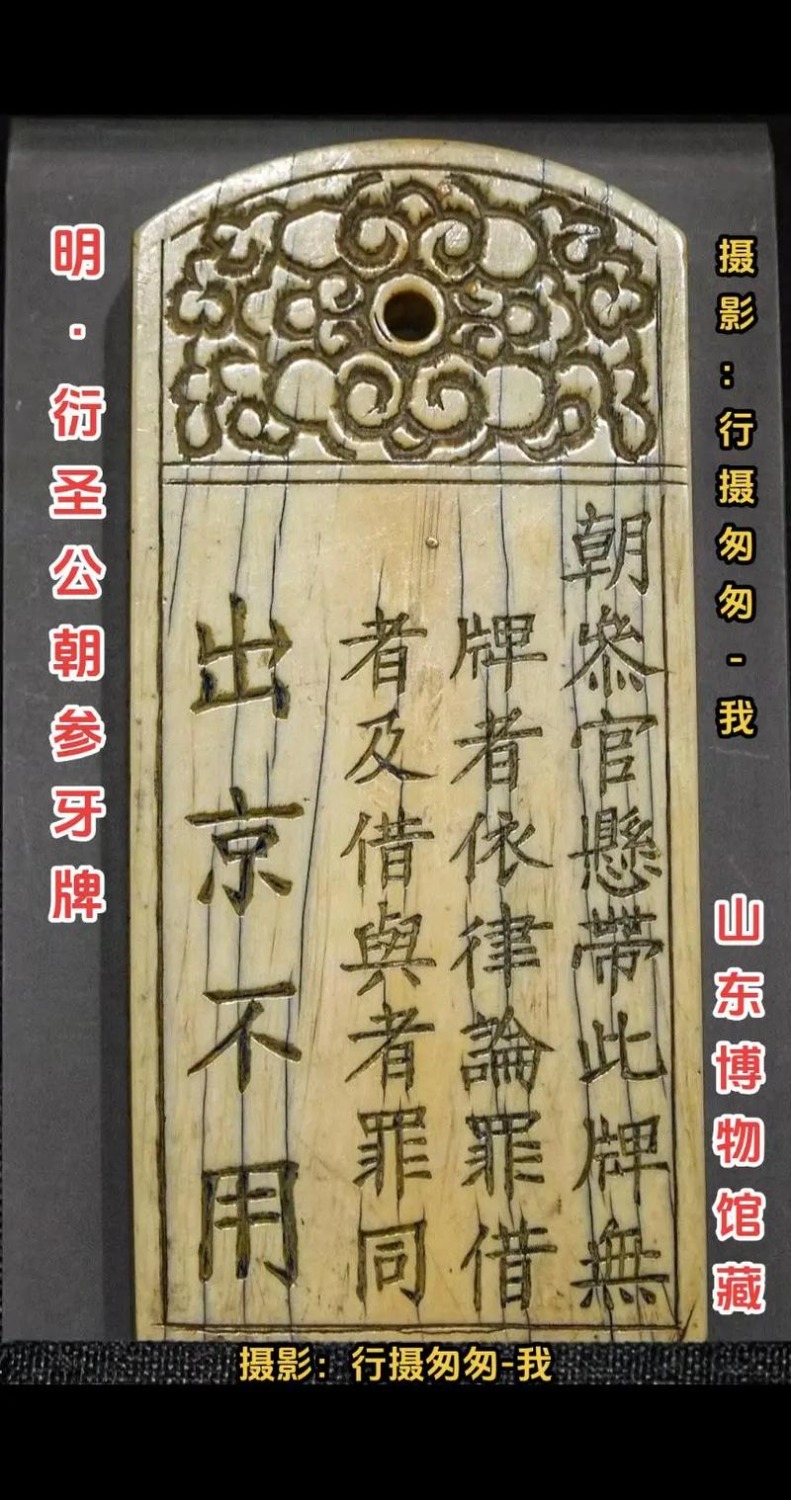 明·衍圣公朝参牙牌
摄影:行摄匆匆-我
朝叅官懸帶此牌無
牌者依律論罪借
者及借與者罪同
出京不用
山东博物馆藏
摄影:行摄匆匆-我